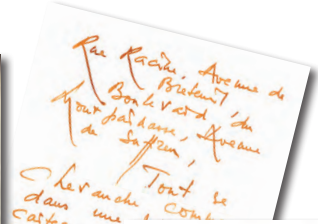 Rue Racine, Avenue de
Breteuil, du
Boulevard
Montparnasse, Avenue
de Suffren,
Tout se
Chevauche
dans une